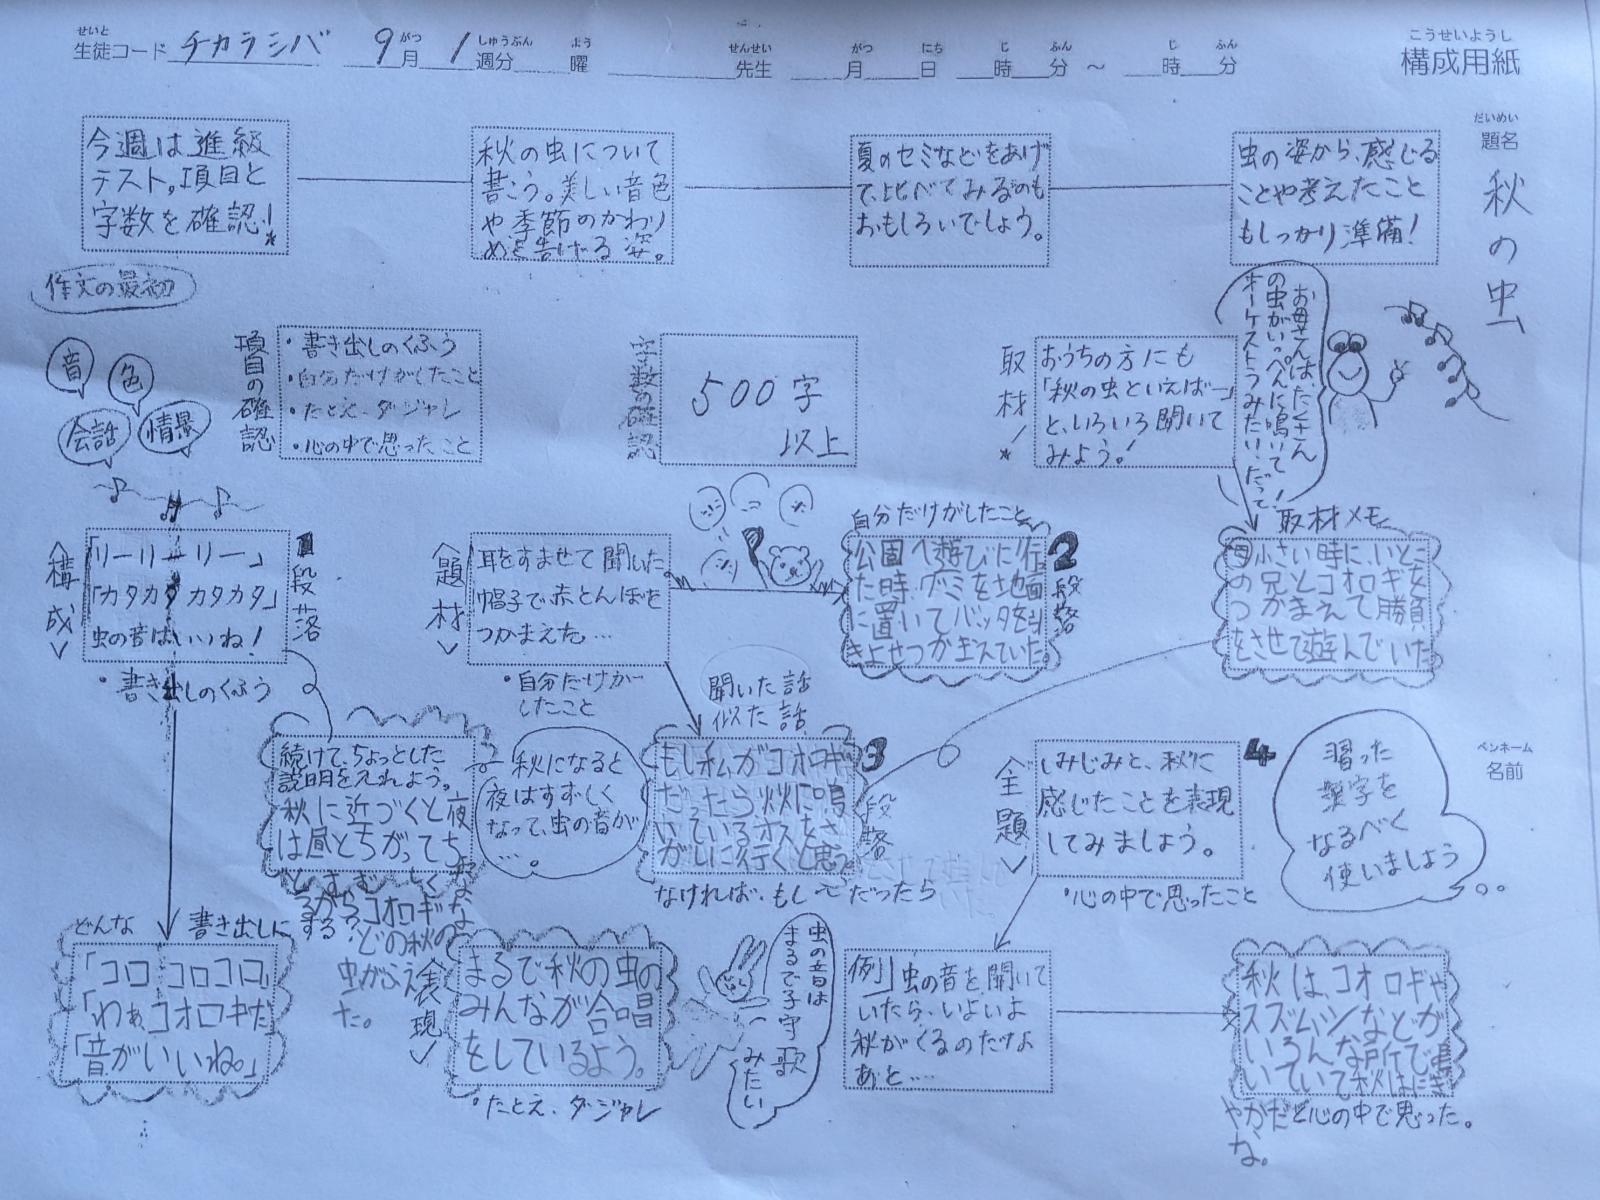 せいと
生徒コード チカラシバ 9月 1週分 曜 先生 月 日 時 分 ～ 時 分
がつ しゅうぶん よう せんせい がつ にち じ ふん じ ふん
こうせいようし
構成用紙
だいめい
題名
秋の虫
今週は進級
テスト。項目と
字数を確認!
秋の虫について
書こう。美しい音色
や季節のかわり
めを告げる姿。
夏のセミなどをあげ
て、比べてみるのも
おもしろいでしょう。
虫の姿から、感じる
ことや考えたこと
もしっかり準備!
作文の最初
音
色
会話
情景
項目の確認
・書き出しのくふう
・自分だけがしたこと
・たとえ、ダジャレ
・心の中で思ったこと
字数の確認
500字
以上
取材!
おうちの方にも
「秋の虫といえば―」
と、いろいろ聞いて
みよう!
お母さんは、たくさん
の虫がいっぺんに鳴いて
オーケストラみたい、だって!
取材メモ
母小さい時に、いとこ
の兄とコオロギを
つかまえて勝負
をさせて遊んでいた
＜構成＞
「リーリーリー」
「カタカタカタカタ」
虫の音はいいね!
・書き出しのくふう
1段落
＜題材＞
耳をすませて聞いた
帽子で赤とんぼを
つかまえた…
・自分だけが
したこと
自分だけがしたこと
公園へ遊びに行っ
た時、グミを地面
に置いてバッタを引
きよせつかまえていた。
2段落
続けて、ちょっとした
説明を入れよう。
秋に近づくと夜
は昼とちがって
秋になると
夜はすずしく
なって、虫の音が
…。
コオロギな
どの秋の
虫がふえ
た。
聞いた話
似た話
もし私がコオロギ
だったら秋に鳴
いているオスをさ
がしに行くと思う。
なければ・もし〜だったら
3段落
＜主題＞
しみじみと、秋に
感じたことを表現
してみましょう。
・心の中で思ったこと
4
習った
漢字を
なるべく
使いましょう
ペンネーム
名前
どんな 書き出しにする?
「コロコロコロ」
「わぁコオロギだ」
「音がいいね。」
＜表現＞
まるで秋の虫の
みんなが合唱
をしているよう。
・たとえ、ダジャレ
虫の音は
まるで子守歌
みたい
例」虫の音を聞いて
いたら、いよいよ
秋がくるのだなあ
あと…
秋は、コオロギや
スズムシなどが
いろんな所で鳴
いていて秋はにぎ
やかだな。
と心の中で思った。